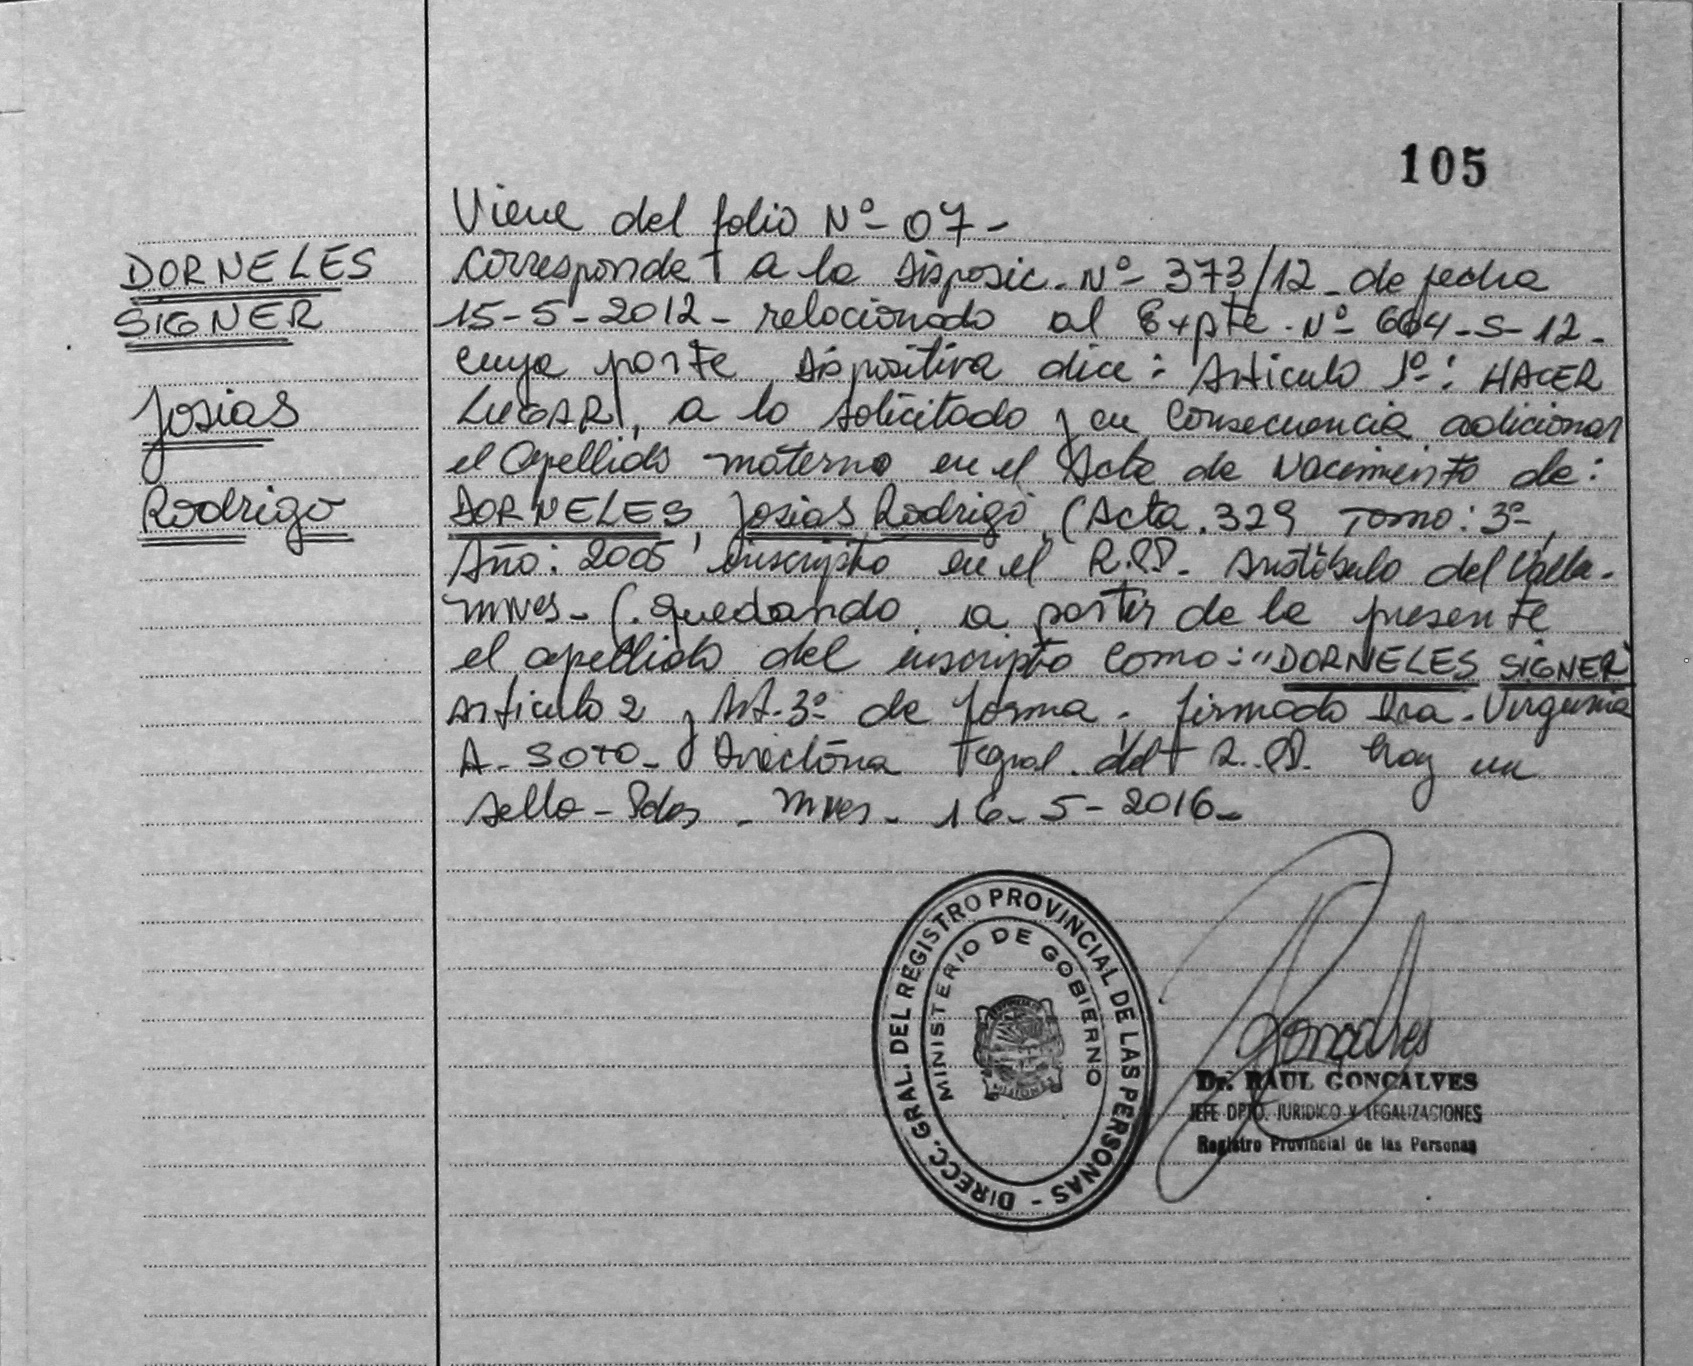 105
Viene del folio Nº- 07-
DORNELES
SIGNER
Josias
Rodrigo
Corresponde a la Disposic. Nº- 373/12 - de fecha
15-5-2012- relacionado al Expte. Nº- 664-S-12-
cuya parte Dispositiva dice: Articulo 1º: HACER
LUGAR, a lo solicitado y en Consecuencia adicionar
el Apellido materno en el Acta de Nacimiento de:
DORNELES, Josias Rodrigo (Acta. 329 Tomo: 3º-
Año: 2005 inscripto en el R.P. Aristóbulo del Valle-
mnes- (. quedando a partir de la presente
el apellido del inscripto Como: "DORNELES SIGNER"
Articulo 2 y Art. 3º de forma. firmado Dra. Virginia
A. SOTO- Directora Gral. del R.P. hay un
sello- Pdas - mnes- 16-5-2016-
DIRECC. GRAL. DEL REGISTRO PROVINCIAL DE LAS PERSONAS -
MINISTERIO DE GOBIERNO
Goncalves
Dr. RAUL GONCALVES
JEFE DPTO. JURIDICO Y LEGALIZACIONES
Registro Provincial de las Personas